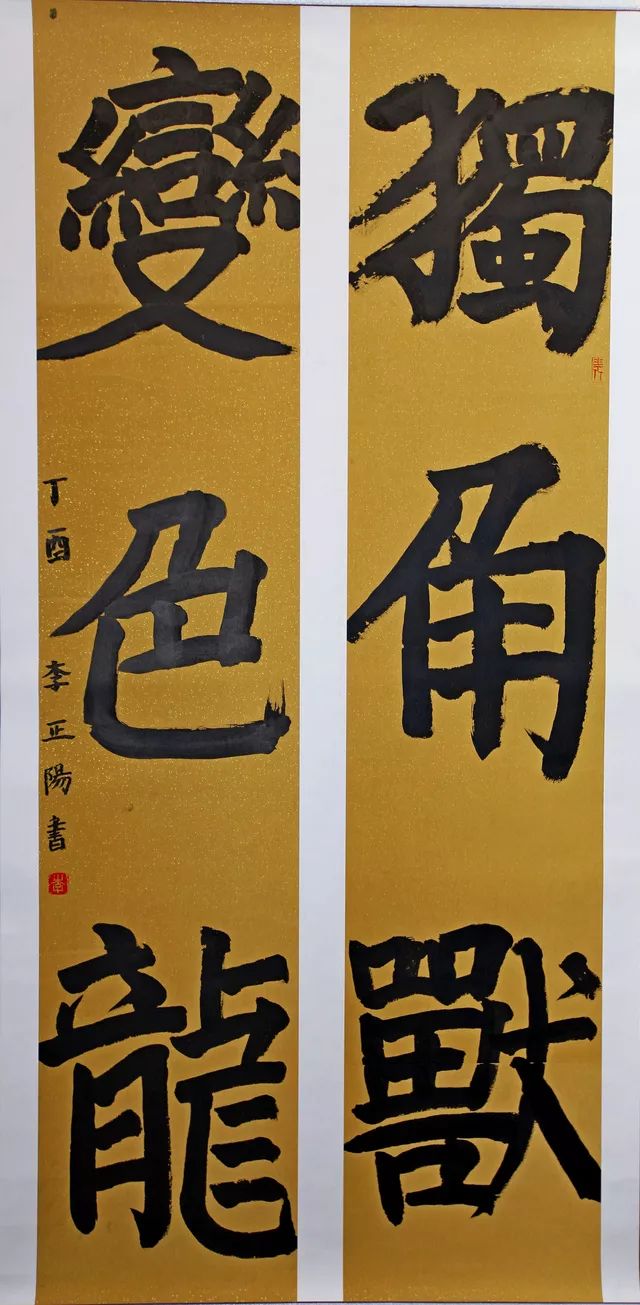 獨角獸
變色龍
丁酉 李正陽書